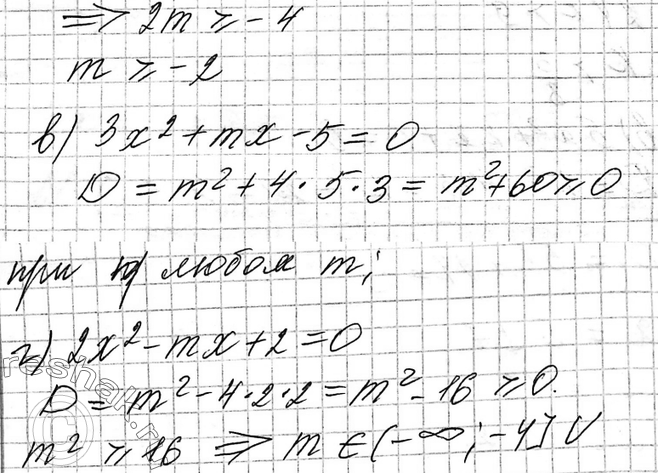 => 2m ≥ -4
m ≥ -2
в) 3x² + mx - 5 = 0
D = m² + 4·5·3 = m² + 60 ≥ 0
при любом m;
г) 2x² - mx + 2 = 0
D = m² - 4·2·2 = m² - 16 ≥ 0.
m² ≥ 16 => m ∈ (-∞; -4] ∪